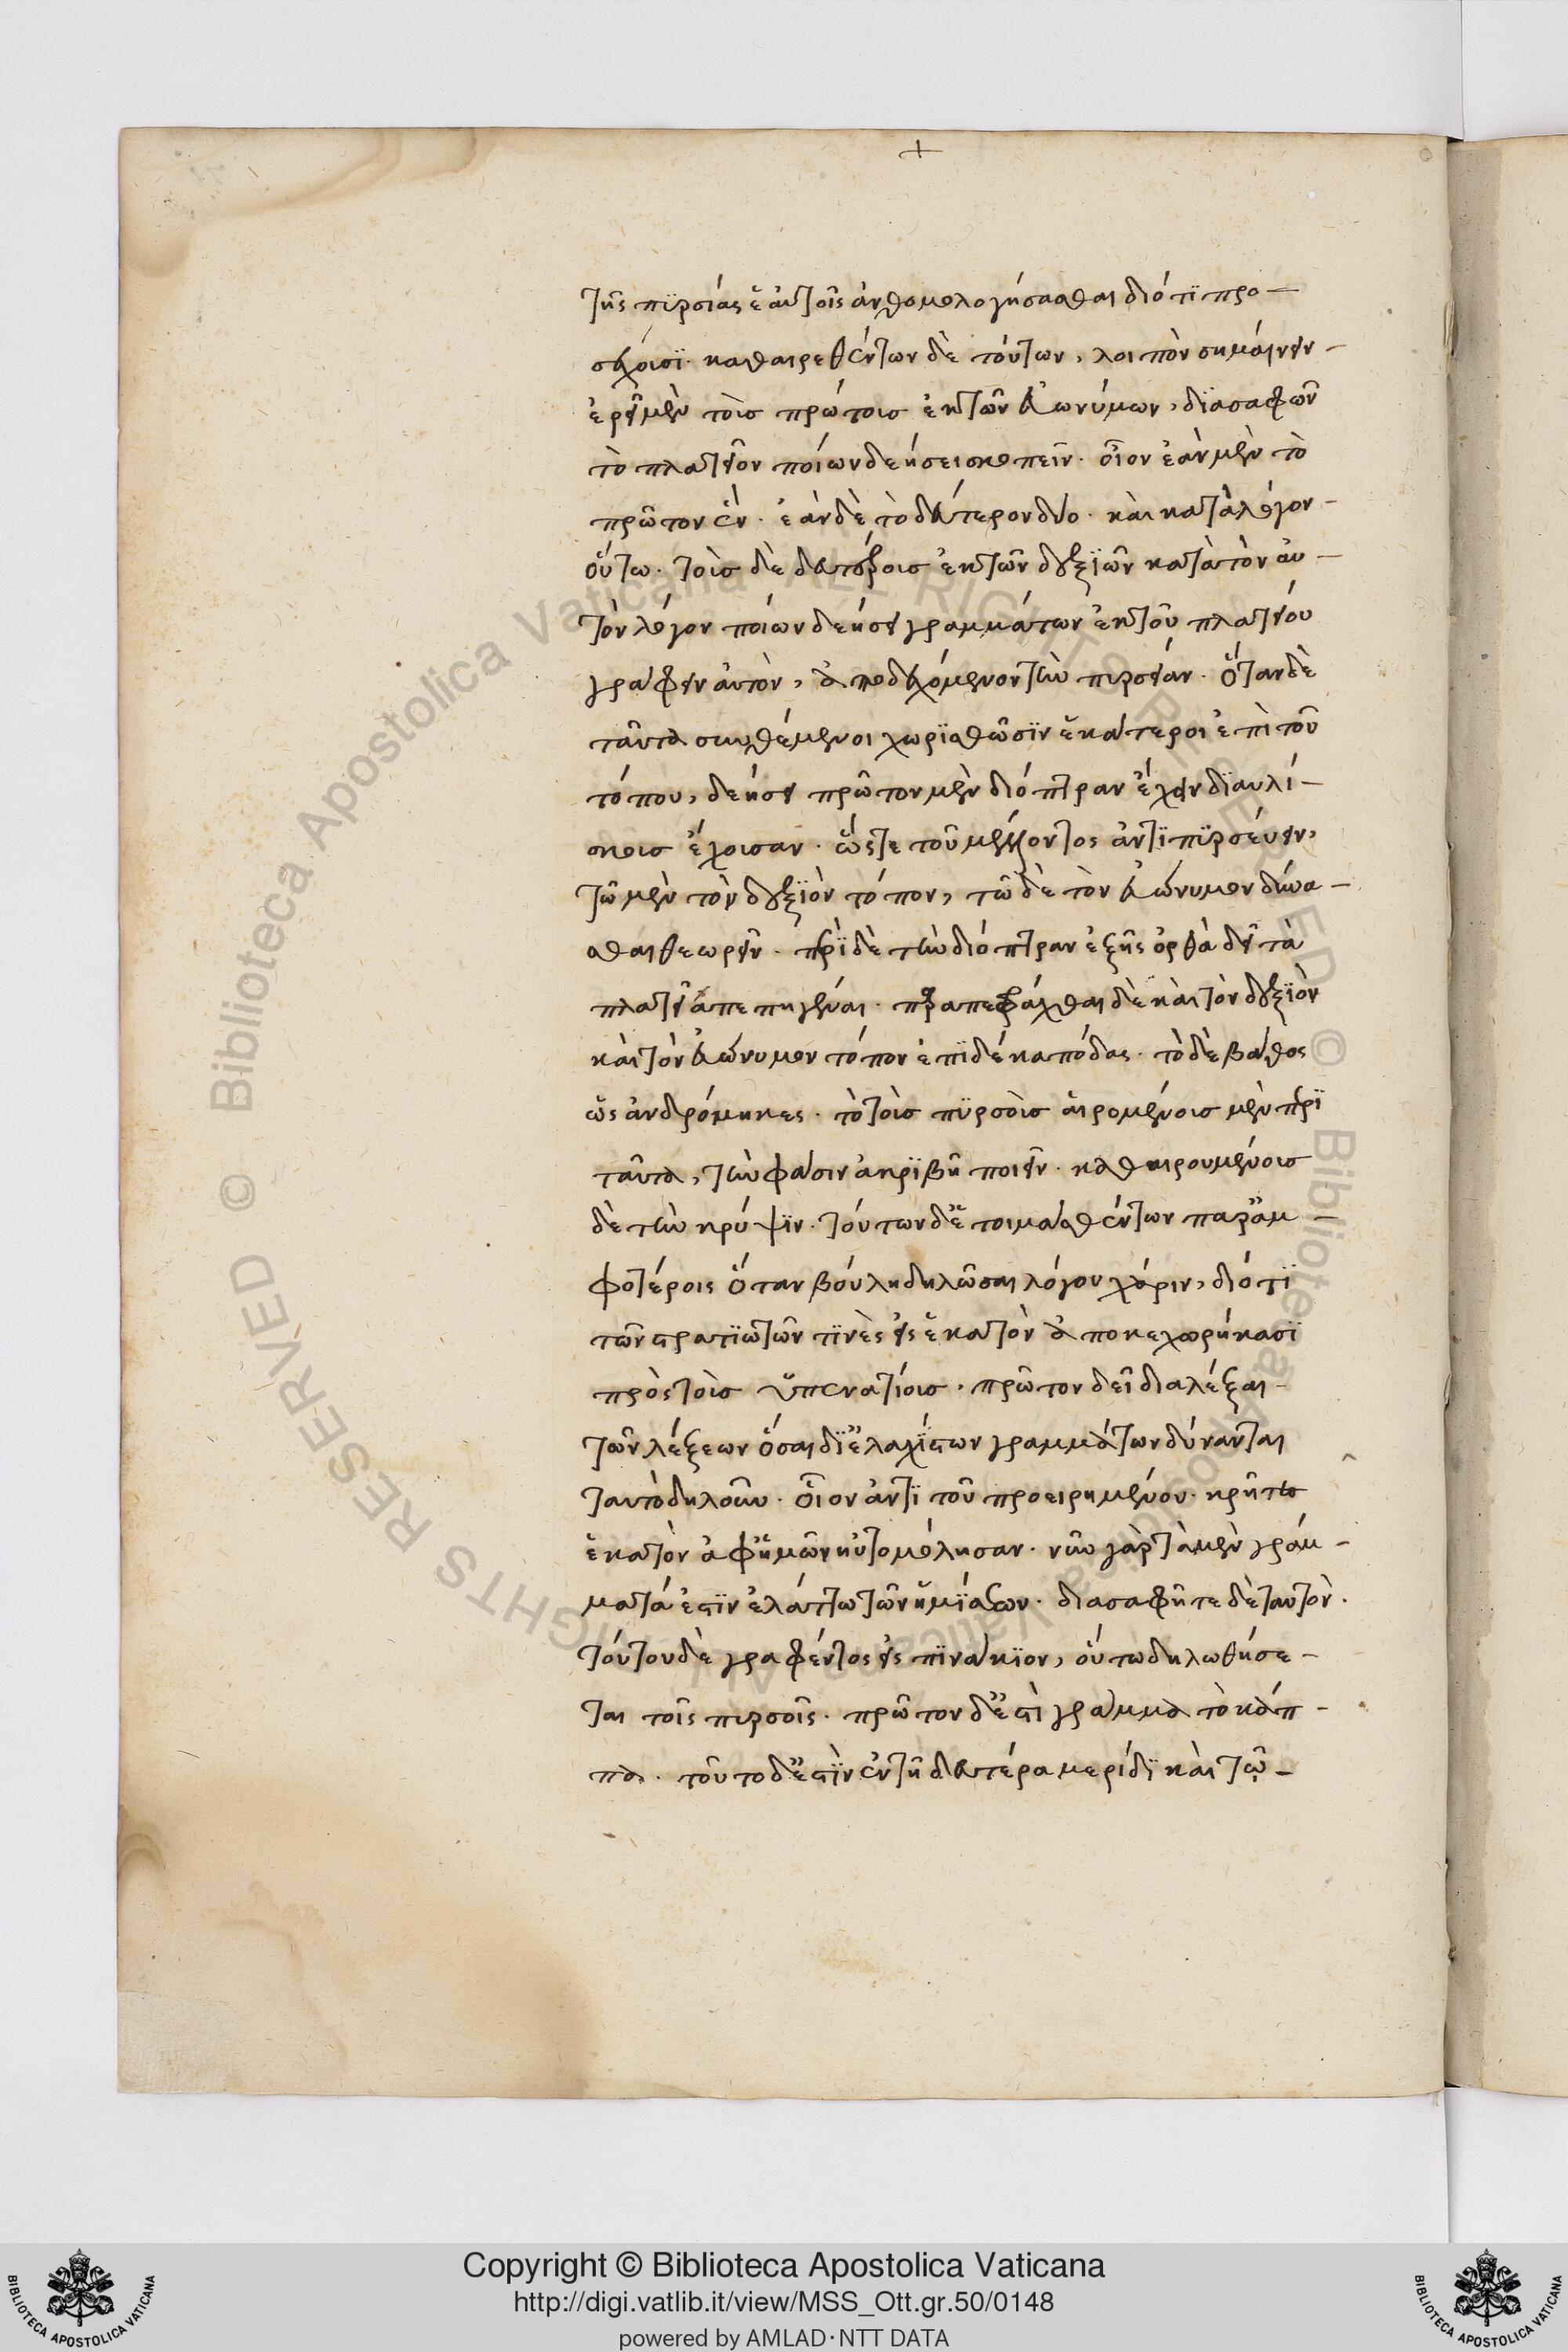 +
τῆς πϋρσίας ἑαυτοῖς ἀνθομολογήσασθαι διότι προ-
σέχουσϊ. καθαιρεθέντων δὲ τούτων, λοιπὸν σημαίνειν-
ἐρεῖ μὲν τοῖσ πρώτοισ ἐκ τῶν εὐωνύμων, διασαφῶν
τὸ πλατεῖον ποίων δεήσει σκοπεῖν. οἷον ἐὰν μὲν τὸ
πρῶτον ἕν. ἐὰν δὲ τὸ δεύτερον δύο. καὶ κατὰ λόγον-
οὕτω. τοῖσ δὲ δευτέροισ ἐκ τῶν δεξιῶν κατὰ τὸν αὐ-
τὸν λόγον ποίων δεήσει γραμμάτων ἐκ τοῦ πλατείου
γράφειν αὐτὸν, ἀποδεχόμενον τὴν πυρσείαν. ὅταν δὲ
ταῦτα συνθέμενοι χωρϊσθῶσϊν ἑκάτεροι ἐπὶ τοῦ
τόπου, δεήσει πρῶτον μὲν διόπτραν ἔχειν δϊαυλί-
σκοισ ἔχουσαν. ὥστε τοῦ μέλλοντος ἀντϊπϋρσεύειν,
τῶ μὲν τὸν δεξϊὸν τόπον, τῶ δὲ τὸν εὐώνυμον δύνα-
σθαι θεωρεῖν. περὶ δὲ τὴν διόπτραν ἑξῆς ὀρθὰ δεῖ τὰ
πλατεῖα πεπηγέναι. παραπεφράχθαι δὲ καὶ τὸν δεξϊὸν
καὶ τὸν εὐώνυμον τόπον ἐπϊ δέκα πόδας. τὸ δὲ βάθος
ὡς ἀνδρόμηκες. τὸ τοὺσ πϋρσοὺσ αἱρομένοισ μὲν περὶ
ταῦτα, τὴν φάσιν ἀκρϊβῆ ποιεῖν. καθαιρουμένοισ
δὲ τὴν κρύψϊν. τούτων δ' ἑτοιμασθέντων παρ' ἀμ-
φοτέροις ὅταν βούλη δηλῶσαι λόγου χάριν, διότϊ
τῶν στρατϊωτῶν τϊνὲς εἰς ἑκατὸν ἀποκεχωρήκασϊ
πρὸς τοὺσ ὑπεναντίουσ. πρῶτον δεῖ διαλέξαι-
τῶν λέξεων ὅσαι δϊ' ἐλαχίστων γραμμάτων δύνανται
ταυτὸ δηλοῦν. οἷον ἀντϊ τοῦ προειρημένου. κρῆτες
ἑκατὸν ἀφ' ἡμῶν ηὐτομόλησαν. νῦν γὰρ τὰ μὲν γράμ-
ματά ἐστϊν ἐλάττω τῶν ἡμϊσέων. διασαφῆται δὲ ταυτὸν.
τούτου δὲ γραφέντος εἰς πϊνάκϊον, οὕτω δηλωθήσε-
ται τοῖς πυρσοῖς. πρῶτον δ' ἐστὶ γράμμα τὸ κάπ-
πα. τοῦτο δ' ἐστϊν ἐν τῆ δευτέρα μερίδϊ καὶ τῷ-
Copyright © Biblioteca Apostolica Vaticana
http://digi.vatlib.it/view/MSS_Ott.gr.50/0148
powered by AMLAD·NTT DATA